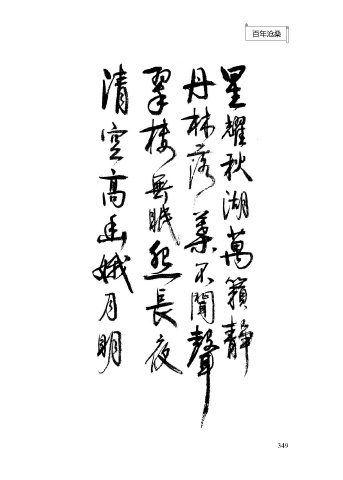 百年沧桑
星耀秋湖萬籟靜
丹林落葉不聞聲
翠樓無眠愁長夜
清空高出娥月明
349